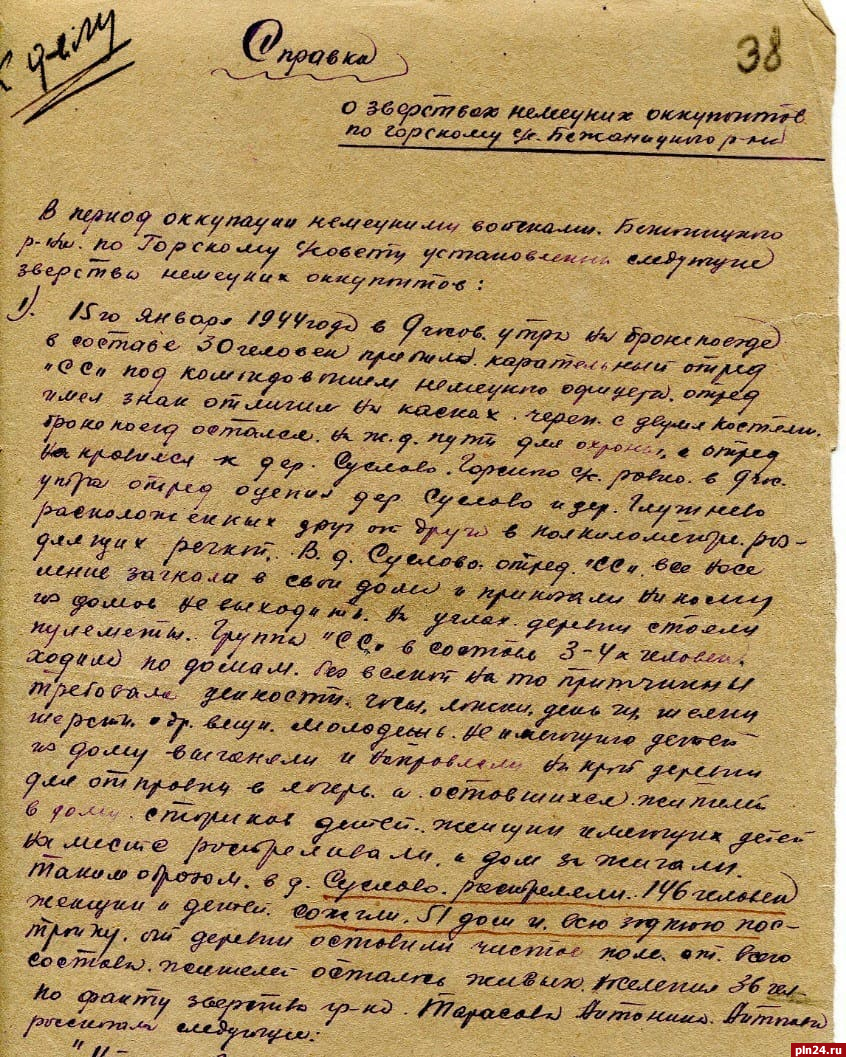 К делу
Справка
38
о зверствах немецких оккупантов
по Горскому с/с. Бежаницкого р-на
В период оккупации немецкими войсками. Бежаницкого
р-на. по Горскому Совету установлены следующие
зверства немецких оккупантов:
1). 15го января 1944 года в 9 часов. утра на бронепоезде
в составе 30 человек прибыл. карательный отряд
"СС" под командованием немецкого офицера. отряд
имел знак отличия на касках. череп. с двумя костями.
бронепоезд остался. на ж.д. пути для охраны, а отряд
направился к дер. Суслово. Горского с/с. ровно. в 9 час.
утра отряд оцепил дер Суслово и дер. Глушнево
расположенных друг от друга в полкилометре. раз-
делящих речкой. В. д. Суслово. отряд. "СС". все насе
ление загнали в свои дома и приказали никому
из домов не выходить. На углах. деревни стояли
пулеметы. Группа "СС" в составе 3-4х человек.
ходила по домам. без всякой на то притчины
требовала ценности. часы, деньги,
шерсть и др. вещи. молодежь. не имеющую детей
из дому выганяли и направляли на край деревни
для отправки в лагерь. а оставшихся жителей
в дому. стариков детей. женщин имеющих детей
на месте расстреливали. а дом зажигали.
Таким образом. в д. Суслово. расстреляли. 146 человек
женщин и детей. сожгли. 51 дом и. всю заднюю пос-
тройку. от деревни оставили чистое поле. от. всего
состава. жителей осталось живых. населения 36 чел.
по факту зверства гр-ка. Тарасова Антонина.
рассказала следующие:
pln24.ru